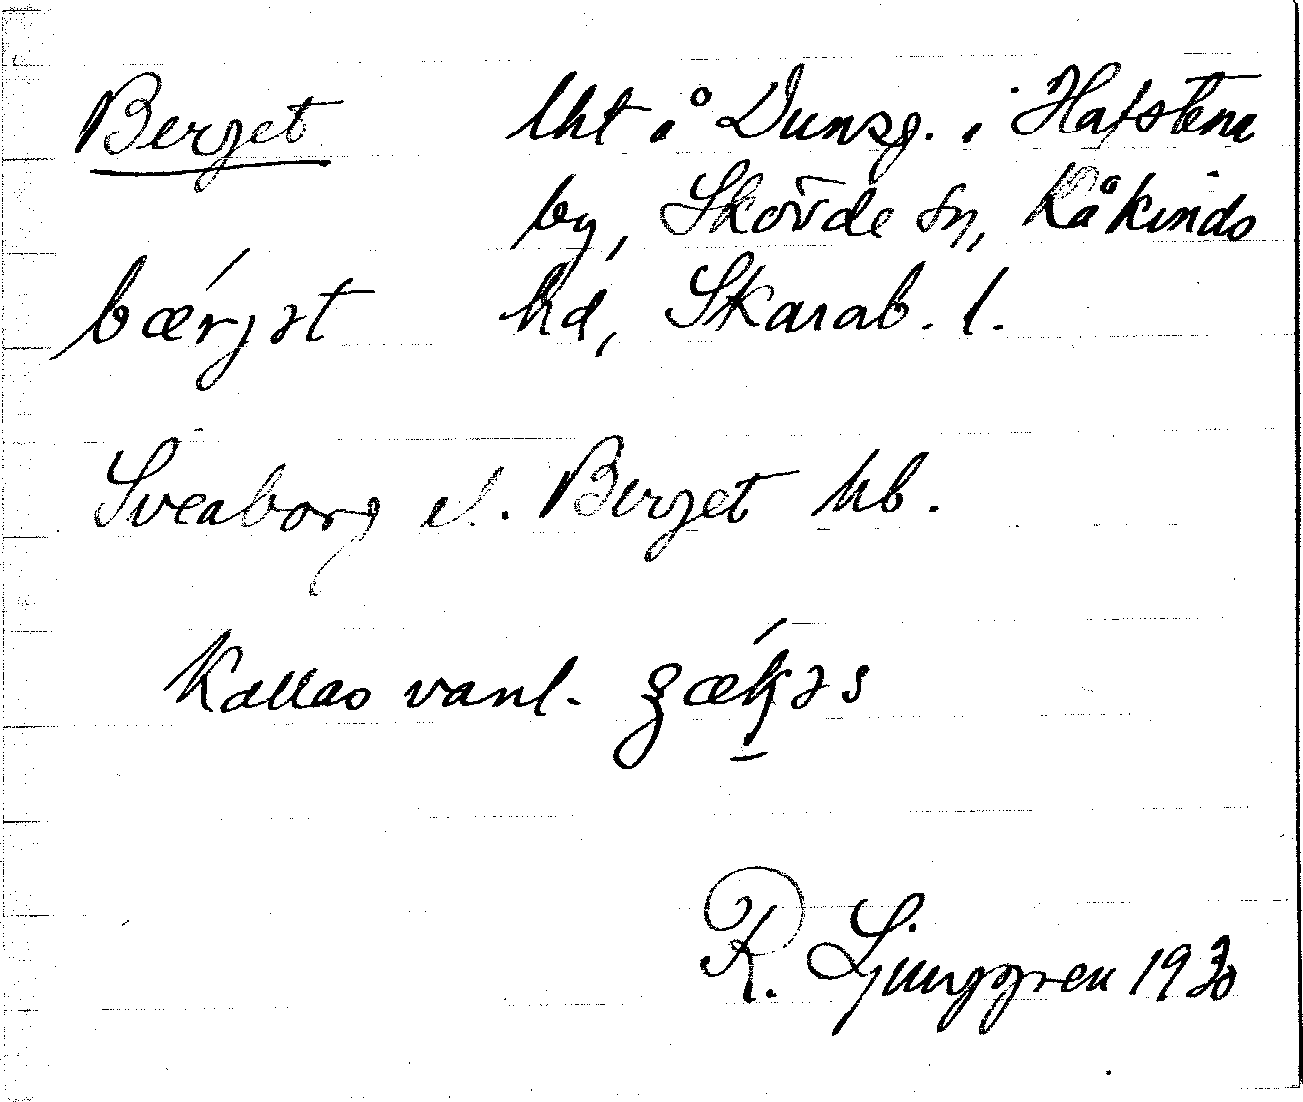 Berget lht å Dunsg. i Hafstena
by, Skövde sn, Kåkinds
bǽrjət hd, Skarab. l.
Sveaborg el. Berget hb.
Kallas vanl.
R. Ljunggren 1930